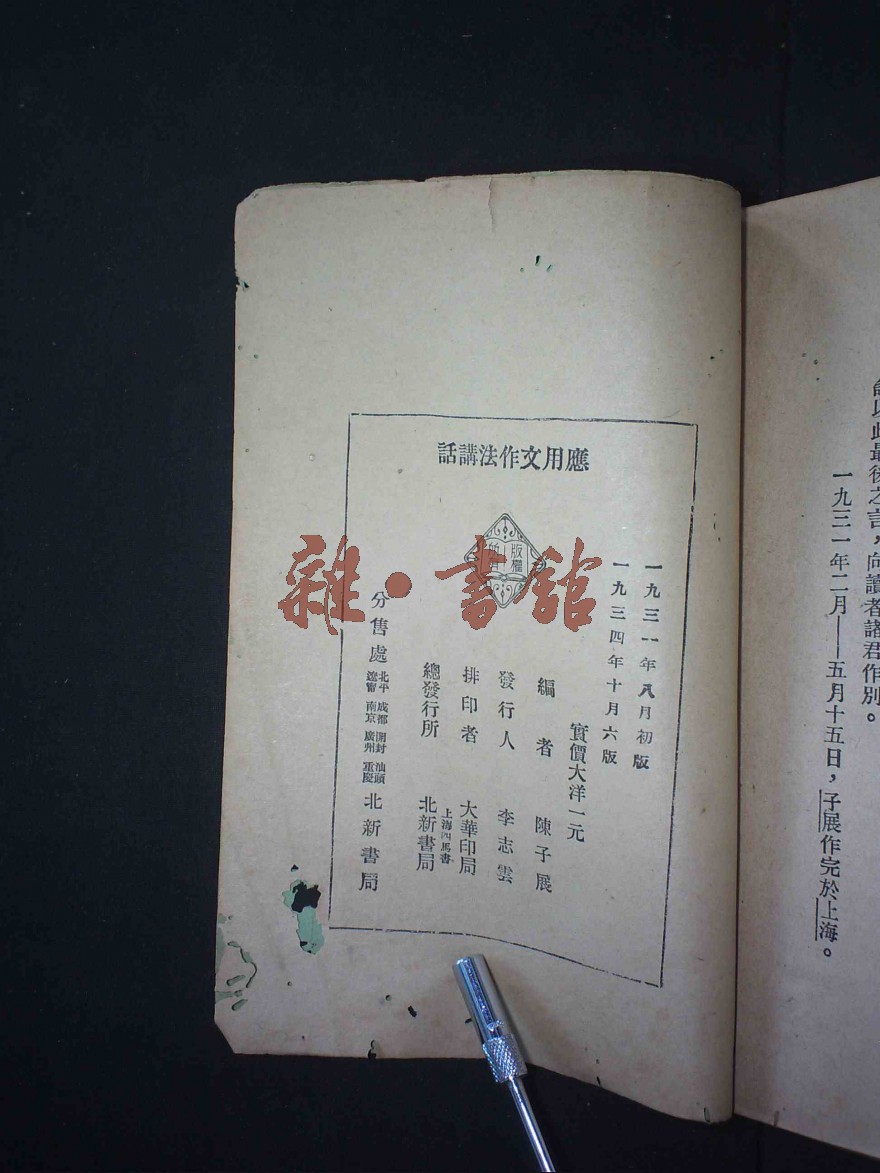 諸以此最後之言，向讀者諸君作別。
一九三一年二月——五月十五日，子展作完於上海。
應用文作法講話
版權
一九三一年八月初版
一九三四年十月六版
實價大洋一元
編者　陳子展
發行人　李志雲
排印者　大華印局
總發行所　上海四馬書　北新書局
分售處　北平　成都　開封　汕頭　遼寧　南京　廣州　重慶　北新書局
雜·書館